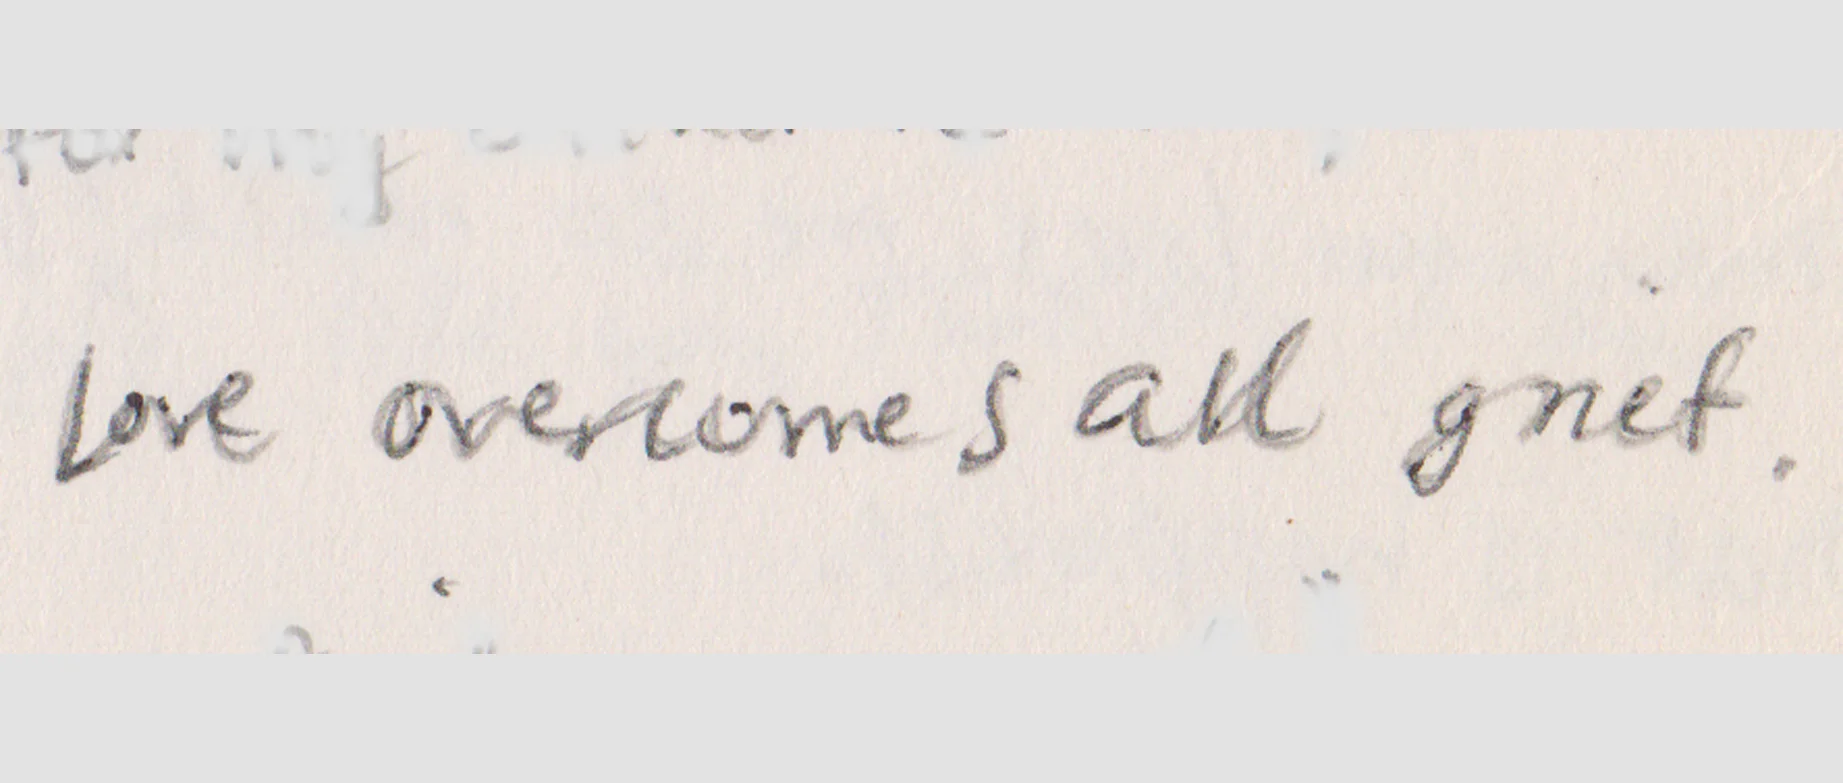 Love overcomes all grief.